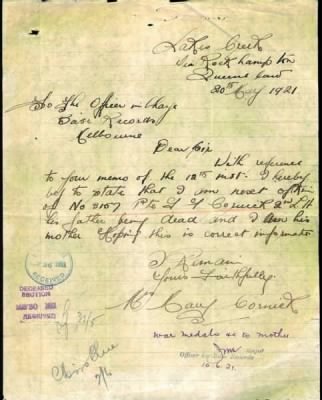 Lakes Creek
via Rockhampton
Queensland
20th May 1921
To The Officer in Charge
Base Records
Melbourne
Dear Sir
With reference
to your memo of the 12th inst- I hereby
beg to state that I am next of kin
of No 3157 Pte
his father being dead and I am his
mother Hoping this is correct information
I Remain
Yours Faithfully
Mrs Cornick
War medals &c to mother
Officer i/c Base Records
10.6.21.
RECEIVED
DECEASED
SECTION
31/5